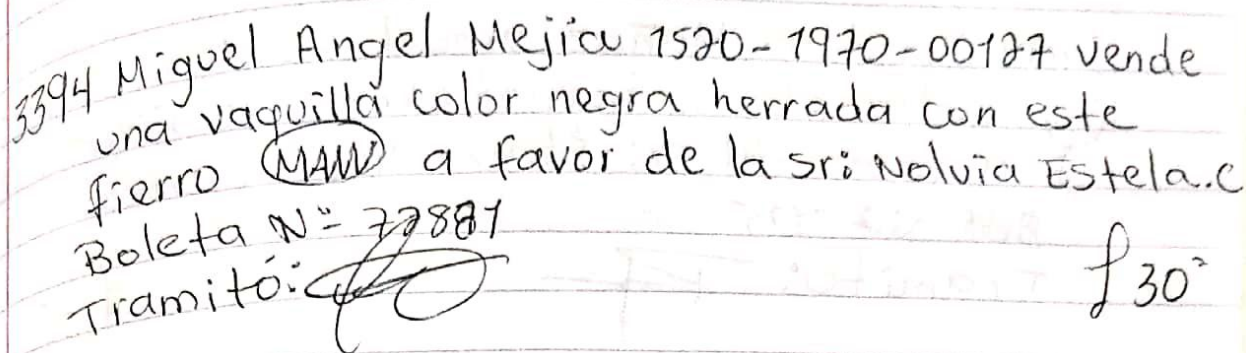 3394 Miguel Angel Mejia 1520-1970-00127 vende
una vaquilla color negra herrada con este
fierro MAW a favor de la sr: Nolvia Estela.C
Boleta Nº 77881
Tramitó:
f 30